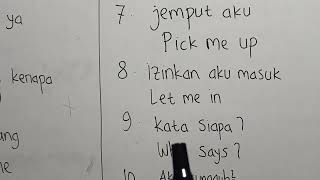 ya
kenapa
7. jemput aku
Pick me up
8. izinkan aku masuk
Let me in
9. kata siapa?
says?
10.